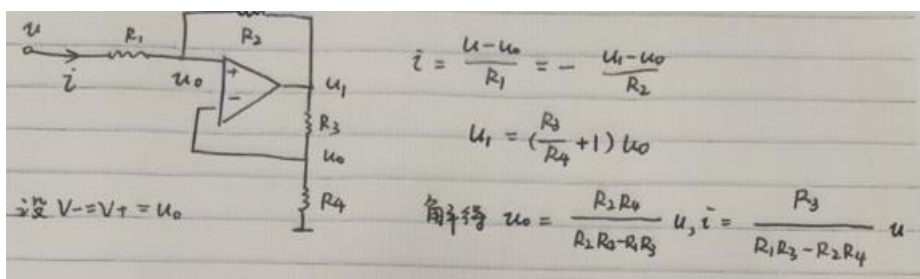 u
R₁
R₂
i
u₀
+
-
u₁
R₃
u₀
R₄
设 V-=V+=u₀
i = \frac{u-u₀}{R₁} = - \frac{u₁-u₀}{R₂}
u₁ = (\frac{R₃}{R₄}+1) u₀
解得 u₀ = \frac{R₂R₄}{R₂R₄-R₁R₃} u, i = \frac{R₃}{R₁R₃-R₂R₄} u